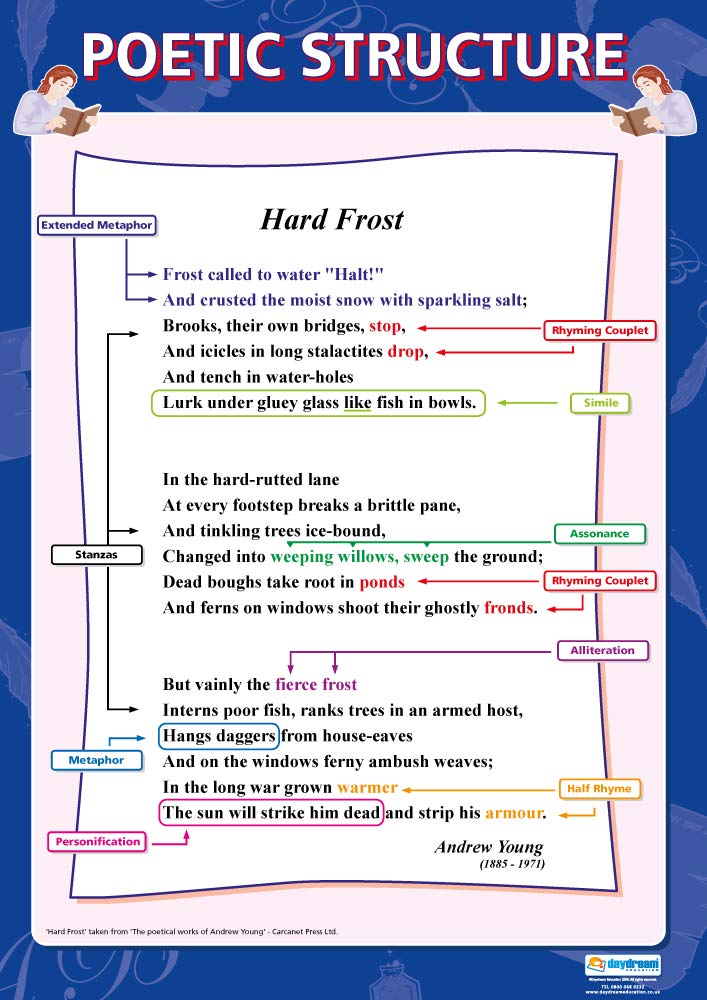 POETIC STRUCTURE
Hard Frost
Extended Metaphor
Frost called to water "Halt!"
And crusted the moist snow with sparkling salt;
Brooks, their own bridges, stop,
Rhyming Couplet
And icicles in long stalactites drop,
And tench in water-holes
Lurk under gluey glass like fish in bowls.
Simile
In the hard-rutted lane
At every footstep breaks a brittle pane,
And tinkling trees ice-bound,
Assonance
Stanzas
Changed into weeping willows, sweep the ground;
Dead boughs take root in ponds
Rhyming Couplet
And ferns on windows shoot their ghostly fronds.
Alliteration
But vainly the fierce frost
Interns poor fish, ranks trees in an armed host,
Hangs daggers from house-eaves
Metaphor
And on the windows ferny ambush weaves;
In the long war grown warmer
Half Rhyme
The sun will strike him dead and strip his armour.
Personification
Andrew Young
(1885 - 1971)
'Hard Frost' taken from 'The poetical works of Andrew Young' - Carcanet Press Ltd.
daydream
EDUCATION
TEL 0800 068 0232
www.daydreameducation.co.uk